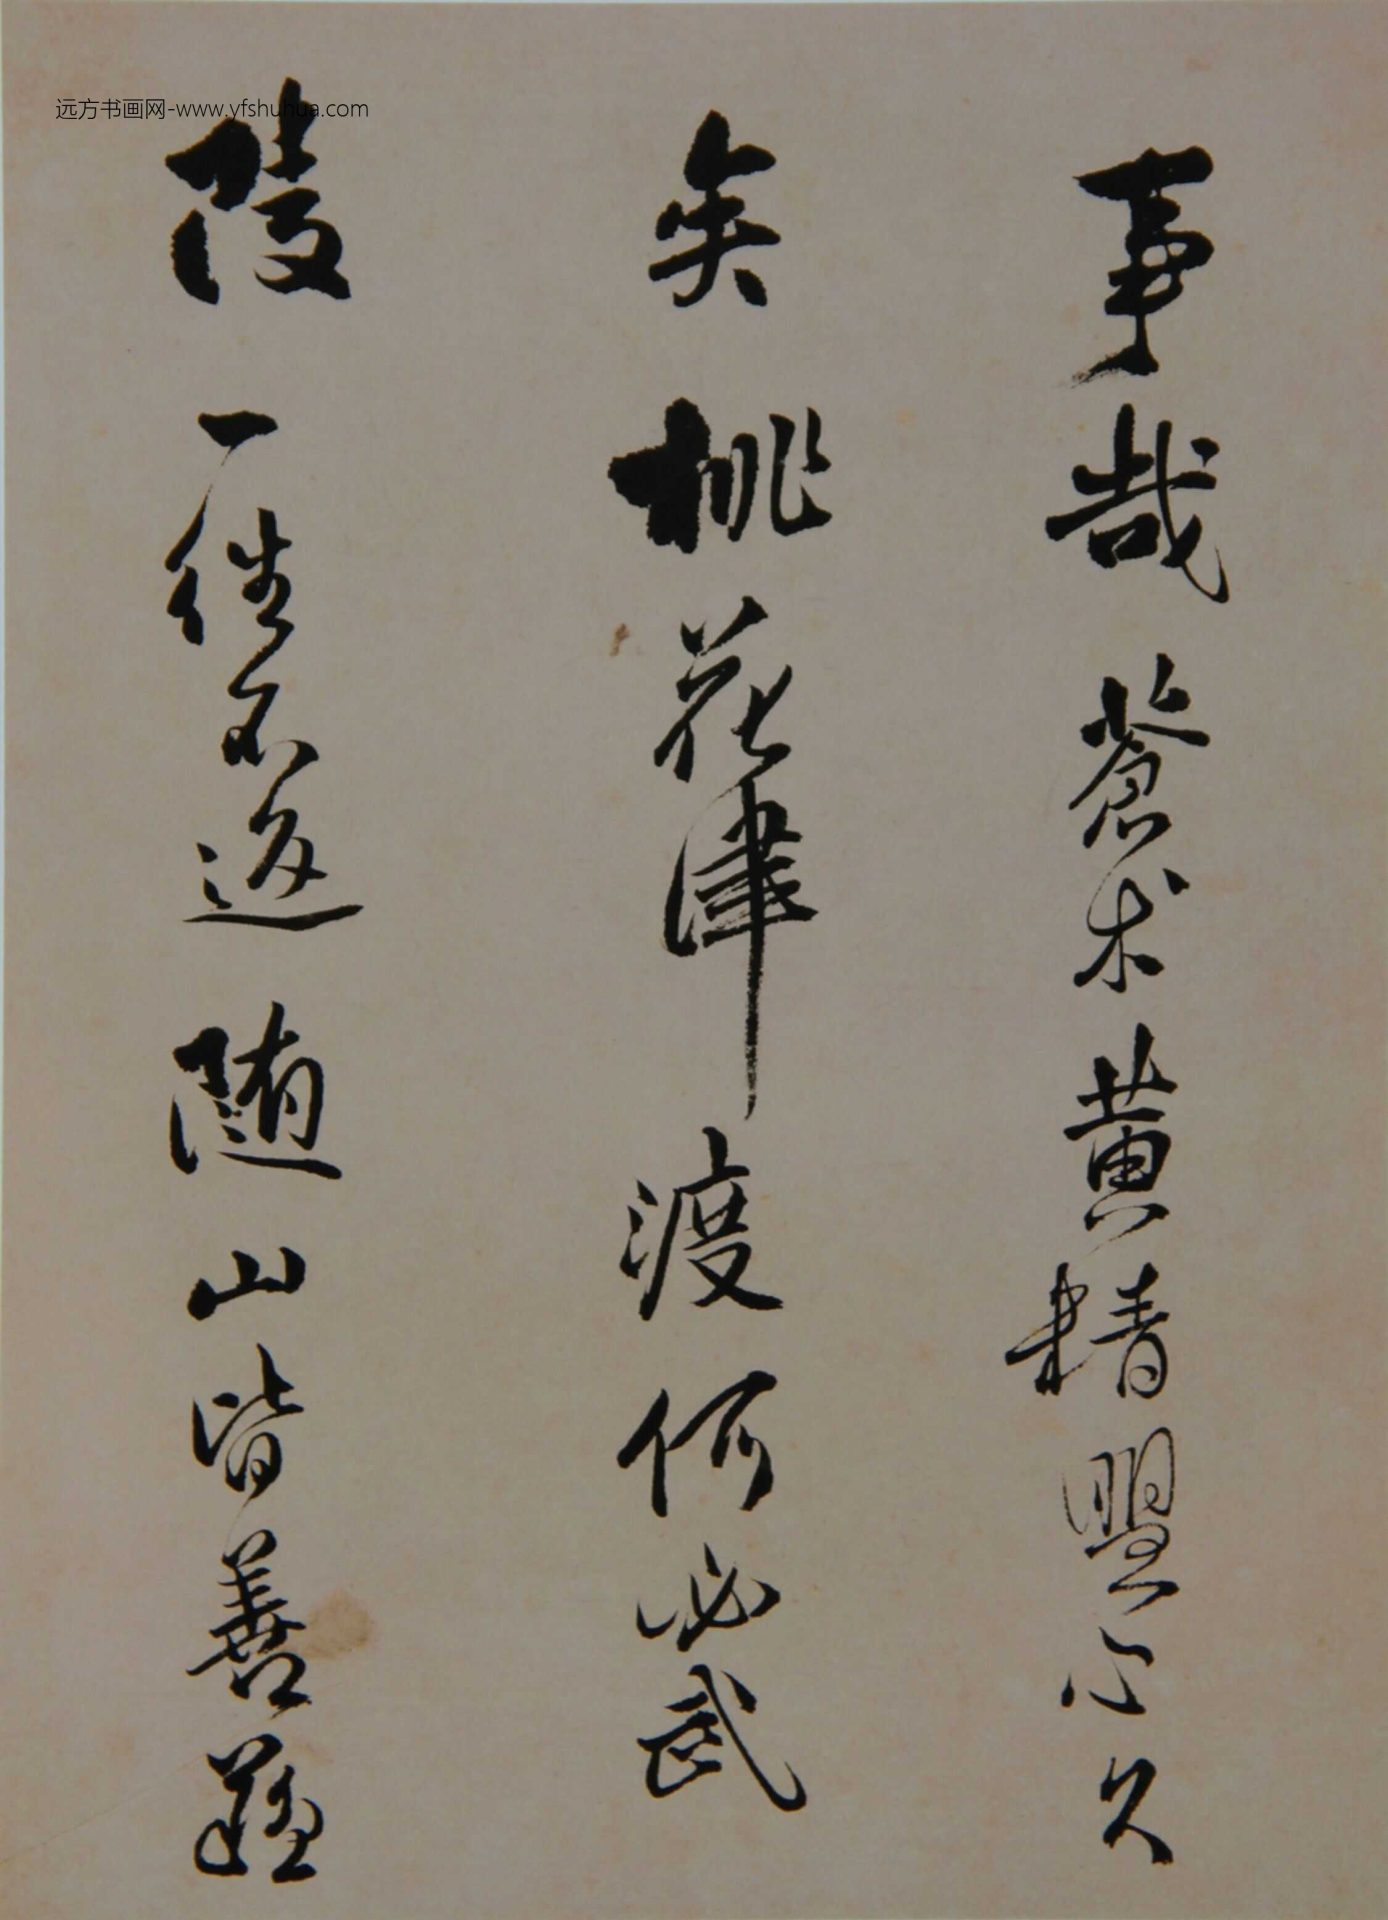 远方书画网-www.yfshuhua.com
事哉蒼术黄精盟心久
矣桃花津渡何必武
陵一往不返随山皆善